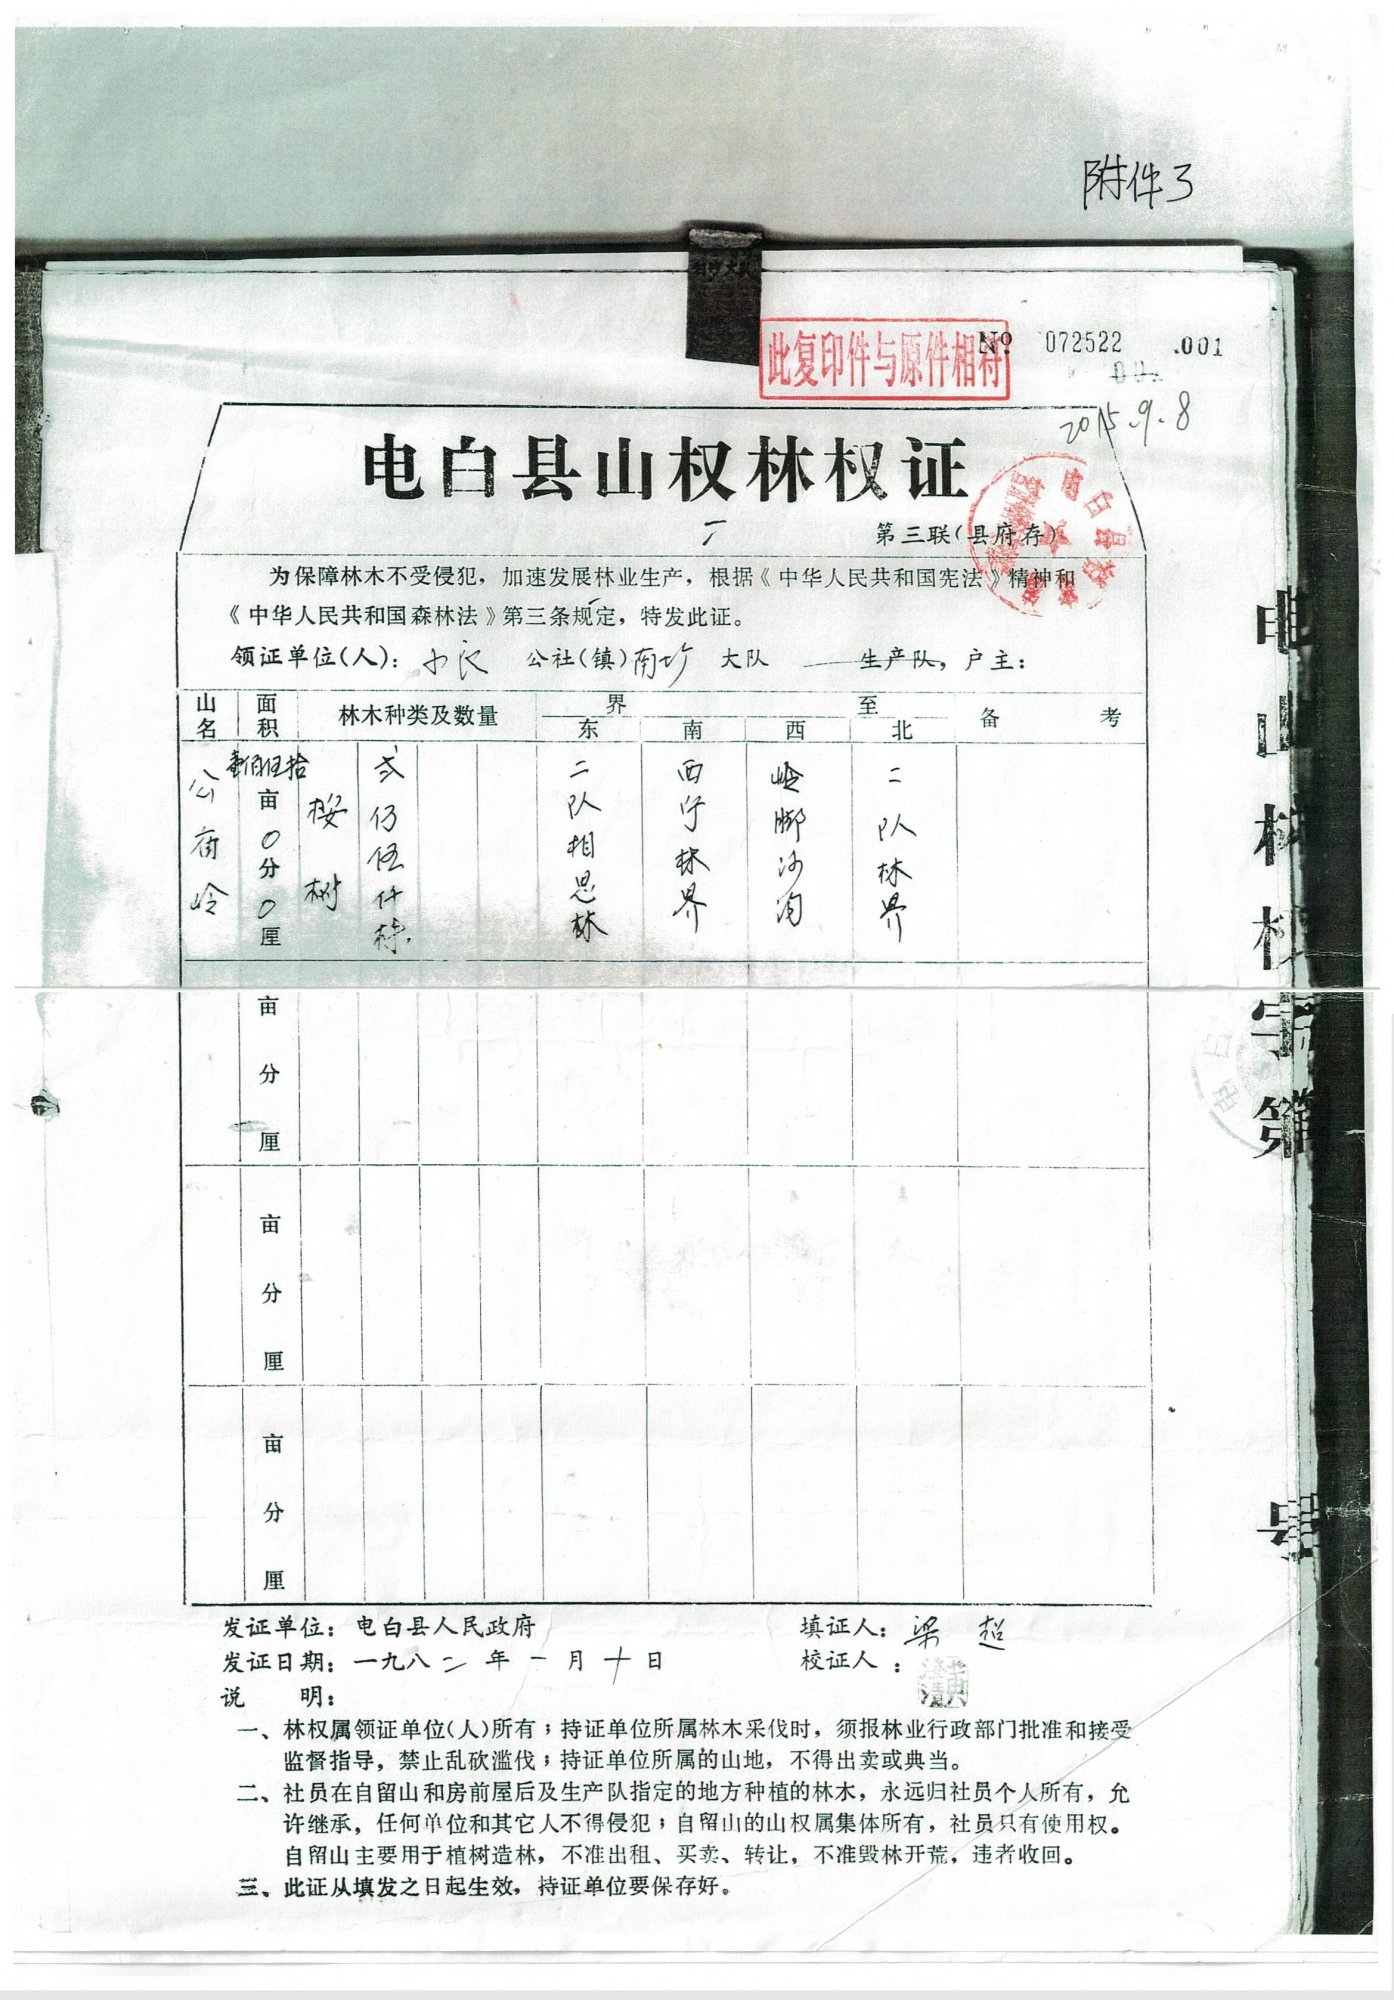 附件3
此复印件与原件相符
№ 072522 .001
2015.9.8
电白县山权林权证
第三联(县府存)
为保障林木不受侵犯，加速发展林业生产，根据《中华人民共和国宪法》精神和
《中华人民共和国森林法》第三条规定，特发此证。
领证单位(人)： 小良 公社(镇) 南圬 大队 生产队，户主：
山名 面积 林木种类及数量 界至 备考
东 南 西 北
公庙岭 壹佰伍拾亩0分0厘 桉树 弍仟伍仟株 二队相思林 西圩林界 岭脚沙沟 二队林界
亩 分 厘
亩 分 厘
亩 分 厘
电白县
电山林权字第 号
发证单位：电白县人民政府 填证人：梁超
发证日期：一九八二年一月十日 校证人：
说 明：
一、林权属领证单位(人)所有；持证单位所属林木采伐时，须报林业行政部门批准和接受
监督指导，禁止乱砍滥伐；持证单位所属的山地，不得出卖或典当。
二、社员在自留山和房前屋后及生产队指定的地方种植的林木，永远归社员个人所有，允
许继承，任何单位和其它人不得侵犯；自留山的山权属集体所有，社员只有使用权。
自留山主要用于植树造林，不准出租、买卖、转让，不准毁林开荒，违者收回。
三、此证从填发之日起生效，持证单位要保存好。